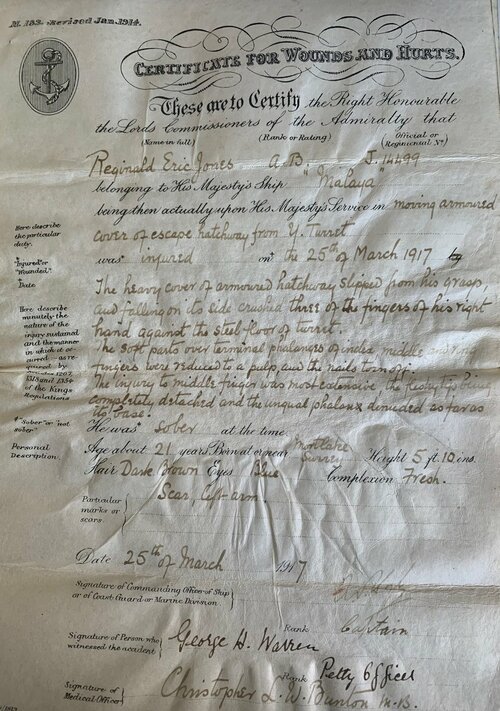 M. 183. Revised Jan. 1914.
CERTIFICATE FOR WOUNDS AND HURTS.
These are to Certify the Right Honourable
the Lords Commissioners of the Admiralty that
(Name in full) (Rank or Rating) (Official or Regimental No)
Reginald Eric Jones A.B. J. 14499
belonging to His Majesty's Ship "Malaya"
being then actually upon His Majesty's Service in moving armoured
Here describe the particular duty.
cover of escape hatchway from Y. Turret
"Injured" or "Wounded."
was injured on the 25th of March 1917 by
Date
The heavy cover of armoured hatchway slipped from his grasp,
and falling on its side crushed three of the fingers of his right
hand against the steel floor of turret.
Here describe minutely the nature of the injury sustained and the manner in which it occurred as required by Articles 1207, 1318 and 1354 of the Kings Regulations
The soft parts over terminal phalanges of index middle and
fingers were reduced to a pulp, and the nails torn off.
The injury to middle finger was most extensive, the
completely detached and the ungual phalanx denuded as far as
its base.
"Sober" or "not sober"
He was sober at the time
Personal Description.
Age about 21 years Born at or near Mortlake Surrey Height 5 ft. 10 ins.
Hair Dark Brown Eyes Blue Complexion Fresh.
Particular marks or scars
Scar, left arm
Date 25th of March 1917
Signature of Commanding Officer of Ship or of Coast Guard or Marine Division
Rank Captain
Signature of Person who witnessed the accident
George H. Warren
Rank Petty Officer
Signature of Medical Officer
Christopher L. W. Bunton M.B.